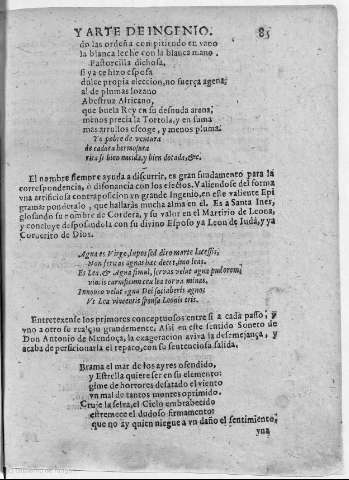 Y ARTE DE INGENIO. 85
do las ordeña compitiendo en vano
la blanca leche con la blanca mano.
Pastorcilla dichosa,
si ya te hizo esposa
dulce propia eleccion, no fuerça agena;
al de plumas lozano
Abestruz Africano,
que buela Rey en su desnuda arena;
menos precia la Tortola, y en suma
mas arrullos escoge, y menos pluma.
Yo pobre de ventura
de cadura hermosura
rica si bien nacida, y bien dotada, &c.
El nombre siempre ayuda a discurrir, es gran fundamento para la
correspondencia, ò disonancia con los efectos. Valiendose del forma
vna artificiosa contraposicion vn grande Ingenio, en este valiente Epi
grama; ponderalo, que hallaràs mucha alma en el. Es a Santa Ines,
glosando su nombre de Cordera, y su valor en el Martirio de Leona,
y concluye desposandola con su divino Esposo ya Leon de Iudà, y ya
Corderito de Dios.
Agna es Virgo, lupos sed diro morte lacessis;
Non servas agnas hæc decet, imo leas.
Et Lea, & Agna simul, servas velut agna pudorem;
Innocuo velut agna Dei sociaberis agno;
Vt Lea victuris sponsa Leonis eris.
Entretexense los primores conceptuosos entre si a cada passo; y
vno a otro se realçan grandemente. Assi en este sentido Soneto de
Don Antonio de Mendoça, la exageracion aviva la desemejança, y
acaba de perficionarla el reparo, con su sentenciosa salida.
Brama el mar de los ayres ofendido,
y Estrella quiere ser en su elemento:
gime de horrores desatado el viento
vn mal de tantos montes oprimido.
Cruje la selva, el Cielo embrabecido
estremece el dudoso firmamento:
que no ay quien niegue a vn daño el sentimiento,
vna